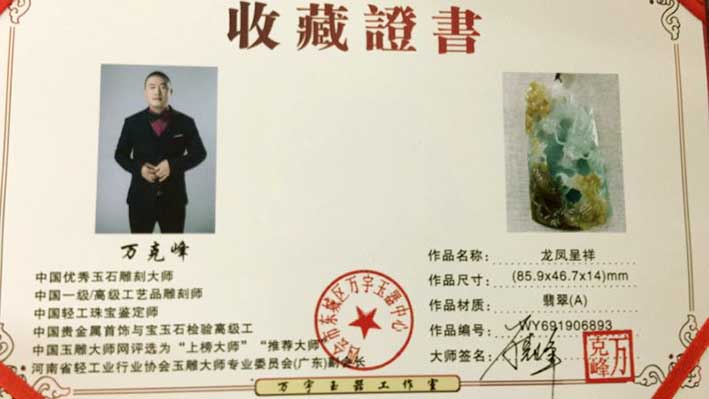 收藏證書
万克峰
中国优秀玉石雕刻大师
中国一级/高级工艺品雕刻师
中国轻工珠宝鉴定师
中国贵金属首饰与宝玉石检验高级工
中国玉雕大师网评选为“上榜大师”“推荐大师”
河南省轻工业行业协会玉雕大师专业委员会(广东)副会长
作品名称： 龙凤呈祥
作品尺寸： (85.9x46.7x14)mm
作品材质： 翡翠(A)
作品编号： WY691906893
大师签名：
万克峰
市东城区万宇玉器中心
万宇玉器工作室